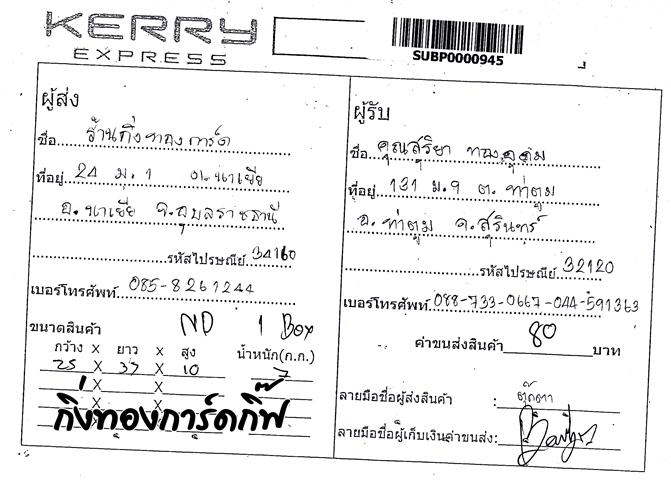 KERRY
EXPRESS
SUBP0000945
ผู้ส่ง
ชื่อ ร้านกิ่งทองการ์ด
ที่อยู่ 24 ม. 1 ต. นาเยีย
อ. นาเยีย จ. อุบลราชธานี
รหัสไปรษณีย์ 34160
เบอร์โทรศัพท์ 085-8261244
ขนาดสินค้า ND 1 Box
กว้าง x ยาว x สูง น้ำหนัก(ก.ก.)
25 X 37 X 10 7
X X
กิ่งทองการ์ดกิ๊ฟ
ผู้รับ
ชื่อ คุณสุริยา
ที่อยู่ 131 ม. 9 ต. ท่าตูม
อ. ท่าตูม จ. สุรินทร์
รหัสไปรษณีย์ 32120
เบอร์โทรศัพท์ 088-733-0667-044-591363
ค่าขนส่งสินค้า 80 บาท
ลายมือชื่อผู้ส่งสินค้า : ตุ๊กตา
ลายมือชื่อผู้เก็บเงินค่าขนส่ง: